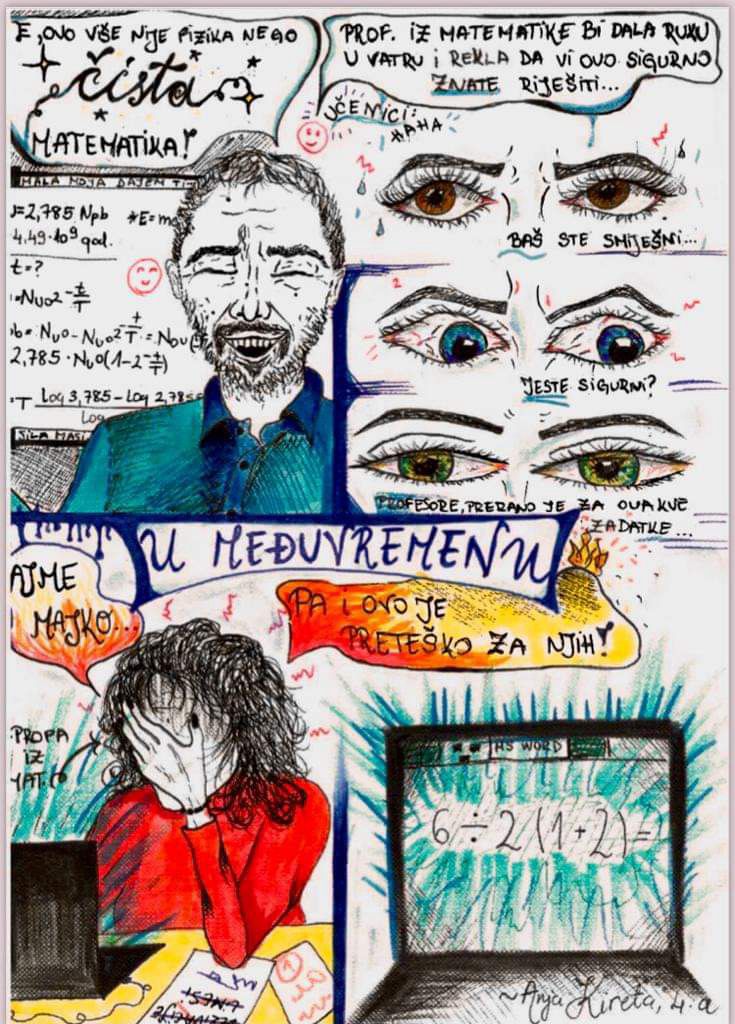 E, OVO VIŠE NIJE FIZIKA NEGO
čista
MATEMATIKA!
PROF. IZ MATEMATIKE BI DALA RUKU
U VATRU I REKLA DA VI OVO SIGURNO
ZNATE RIJEŠITI...
UČENICI:
HAHA
BAŠ STE SMIJEŠNI...
MALA MOJA DAJEM TI
J=2,785 Npb *E=m
4.49·10⁹ god.
t=?
=Nu02^-t/T
b=Nu0-Nu02^-t/T=Nou(
2,785·Nu0(1-2^-t/T)
T Log 3,785-Log 2,785
Log
SILA
JESTE SIGURNI?
PROFESORE, PRERANO JE ZA OVAKVE
ZADATKE...
U MEĐUVREMENU
AJME
MAJKO...
PA I OVO JE
PRETEŠKO ZA NJIH!
PROFA
IZ
MAT.
MS WORD
6÷2(1+2)=
MAT
TEST
1
~Anja Kireta, 4.a